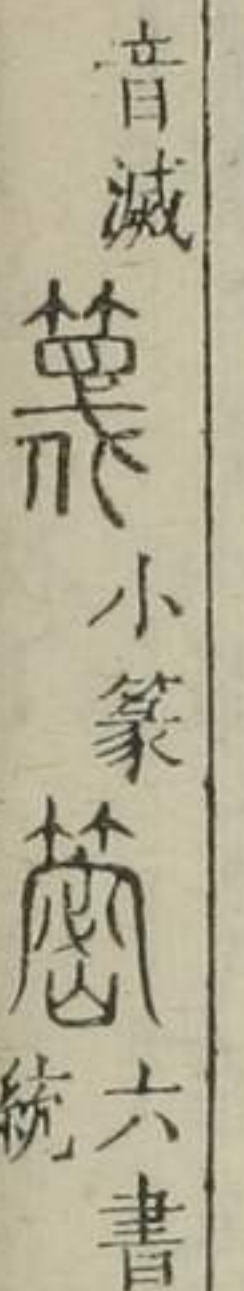 音滅篾小篆六書統